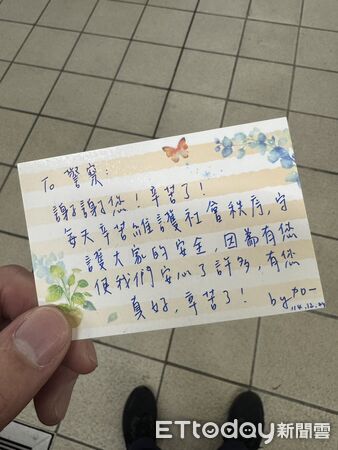 To 警察:
謝謝您！辛苦了！
每天辛苦維護社會秩序，守
護大家的安全，因為有您
使我們安心了許多，有您
真好，辛苦了！ by
114.12.
ETtoday新聞雲